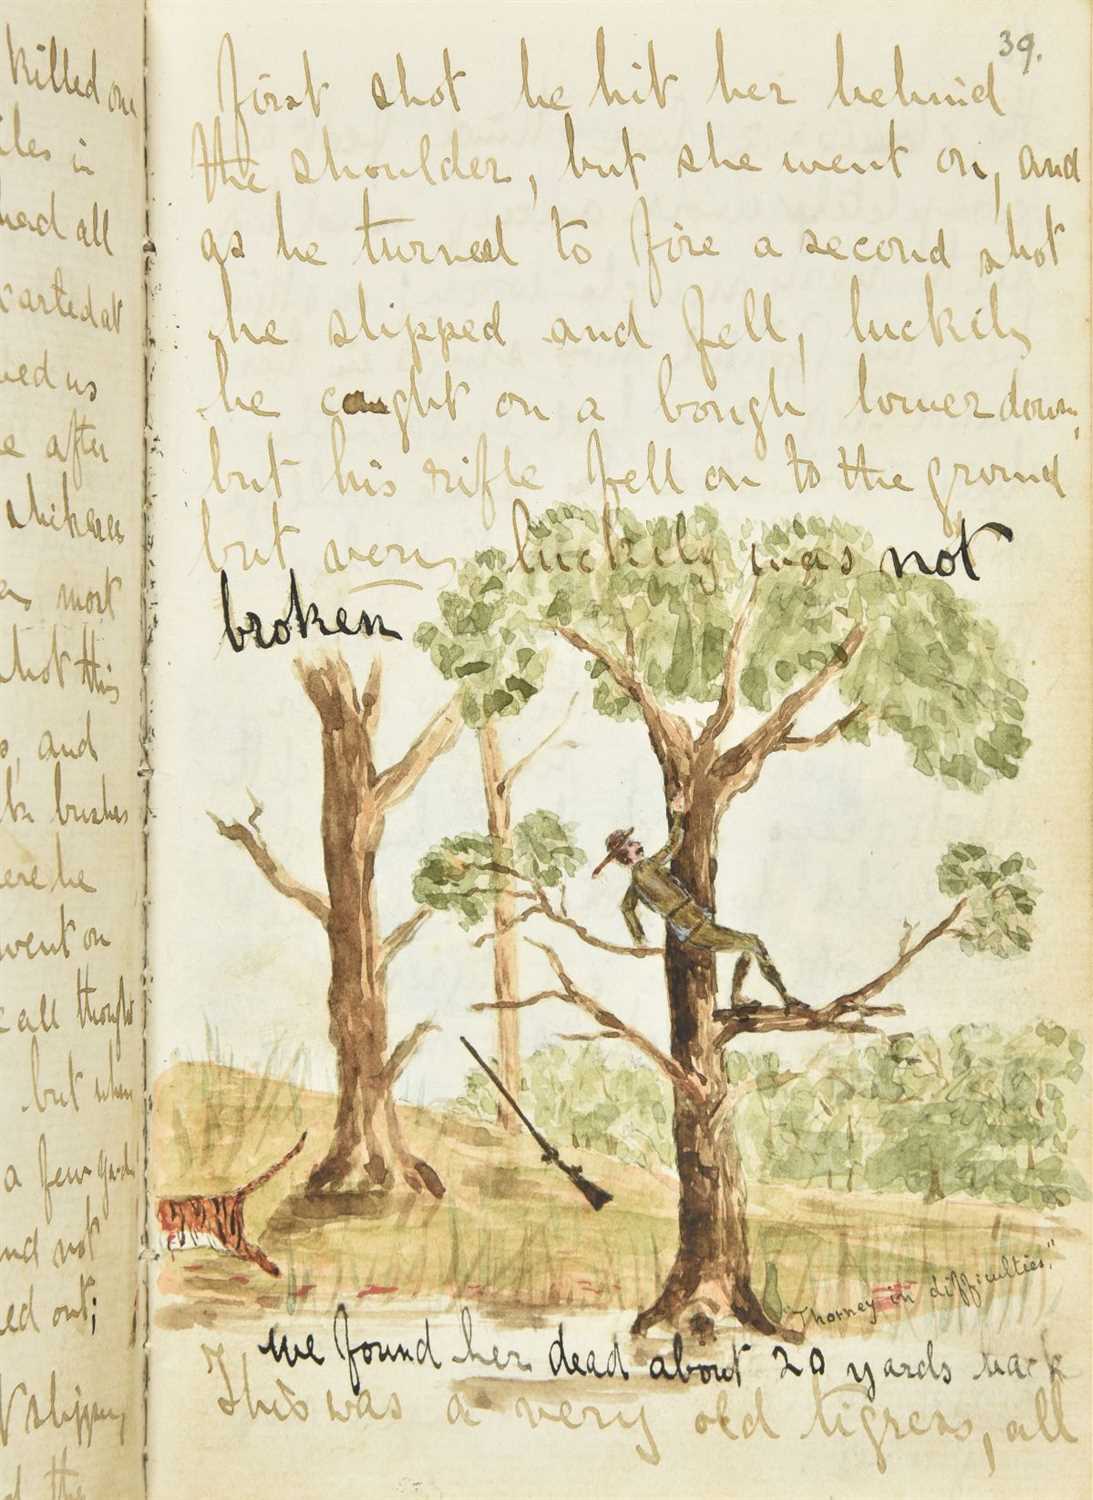 killed one
iles in
had all
carted at
ved us
e after
shikaree
most
shot this
, and
bushes
ere he
went on
all thought
but when
a few yards
and not
ed out;
slippery
the
39.
first shot he hit her behind
the shoulder, but she went on, and
as he turned to fire a second shot
he slipped and fell, luckily
he caught on a bough lower down,
but his rifle fell on to the ground
but very luckily was not
broken
"Thorney in difficulties."
we found her dead about 20 yards back
This was a very old tigress, all